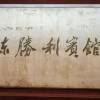 东勝利賓館